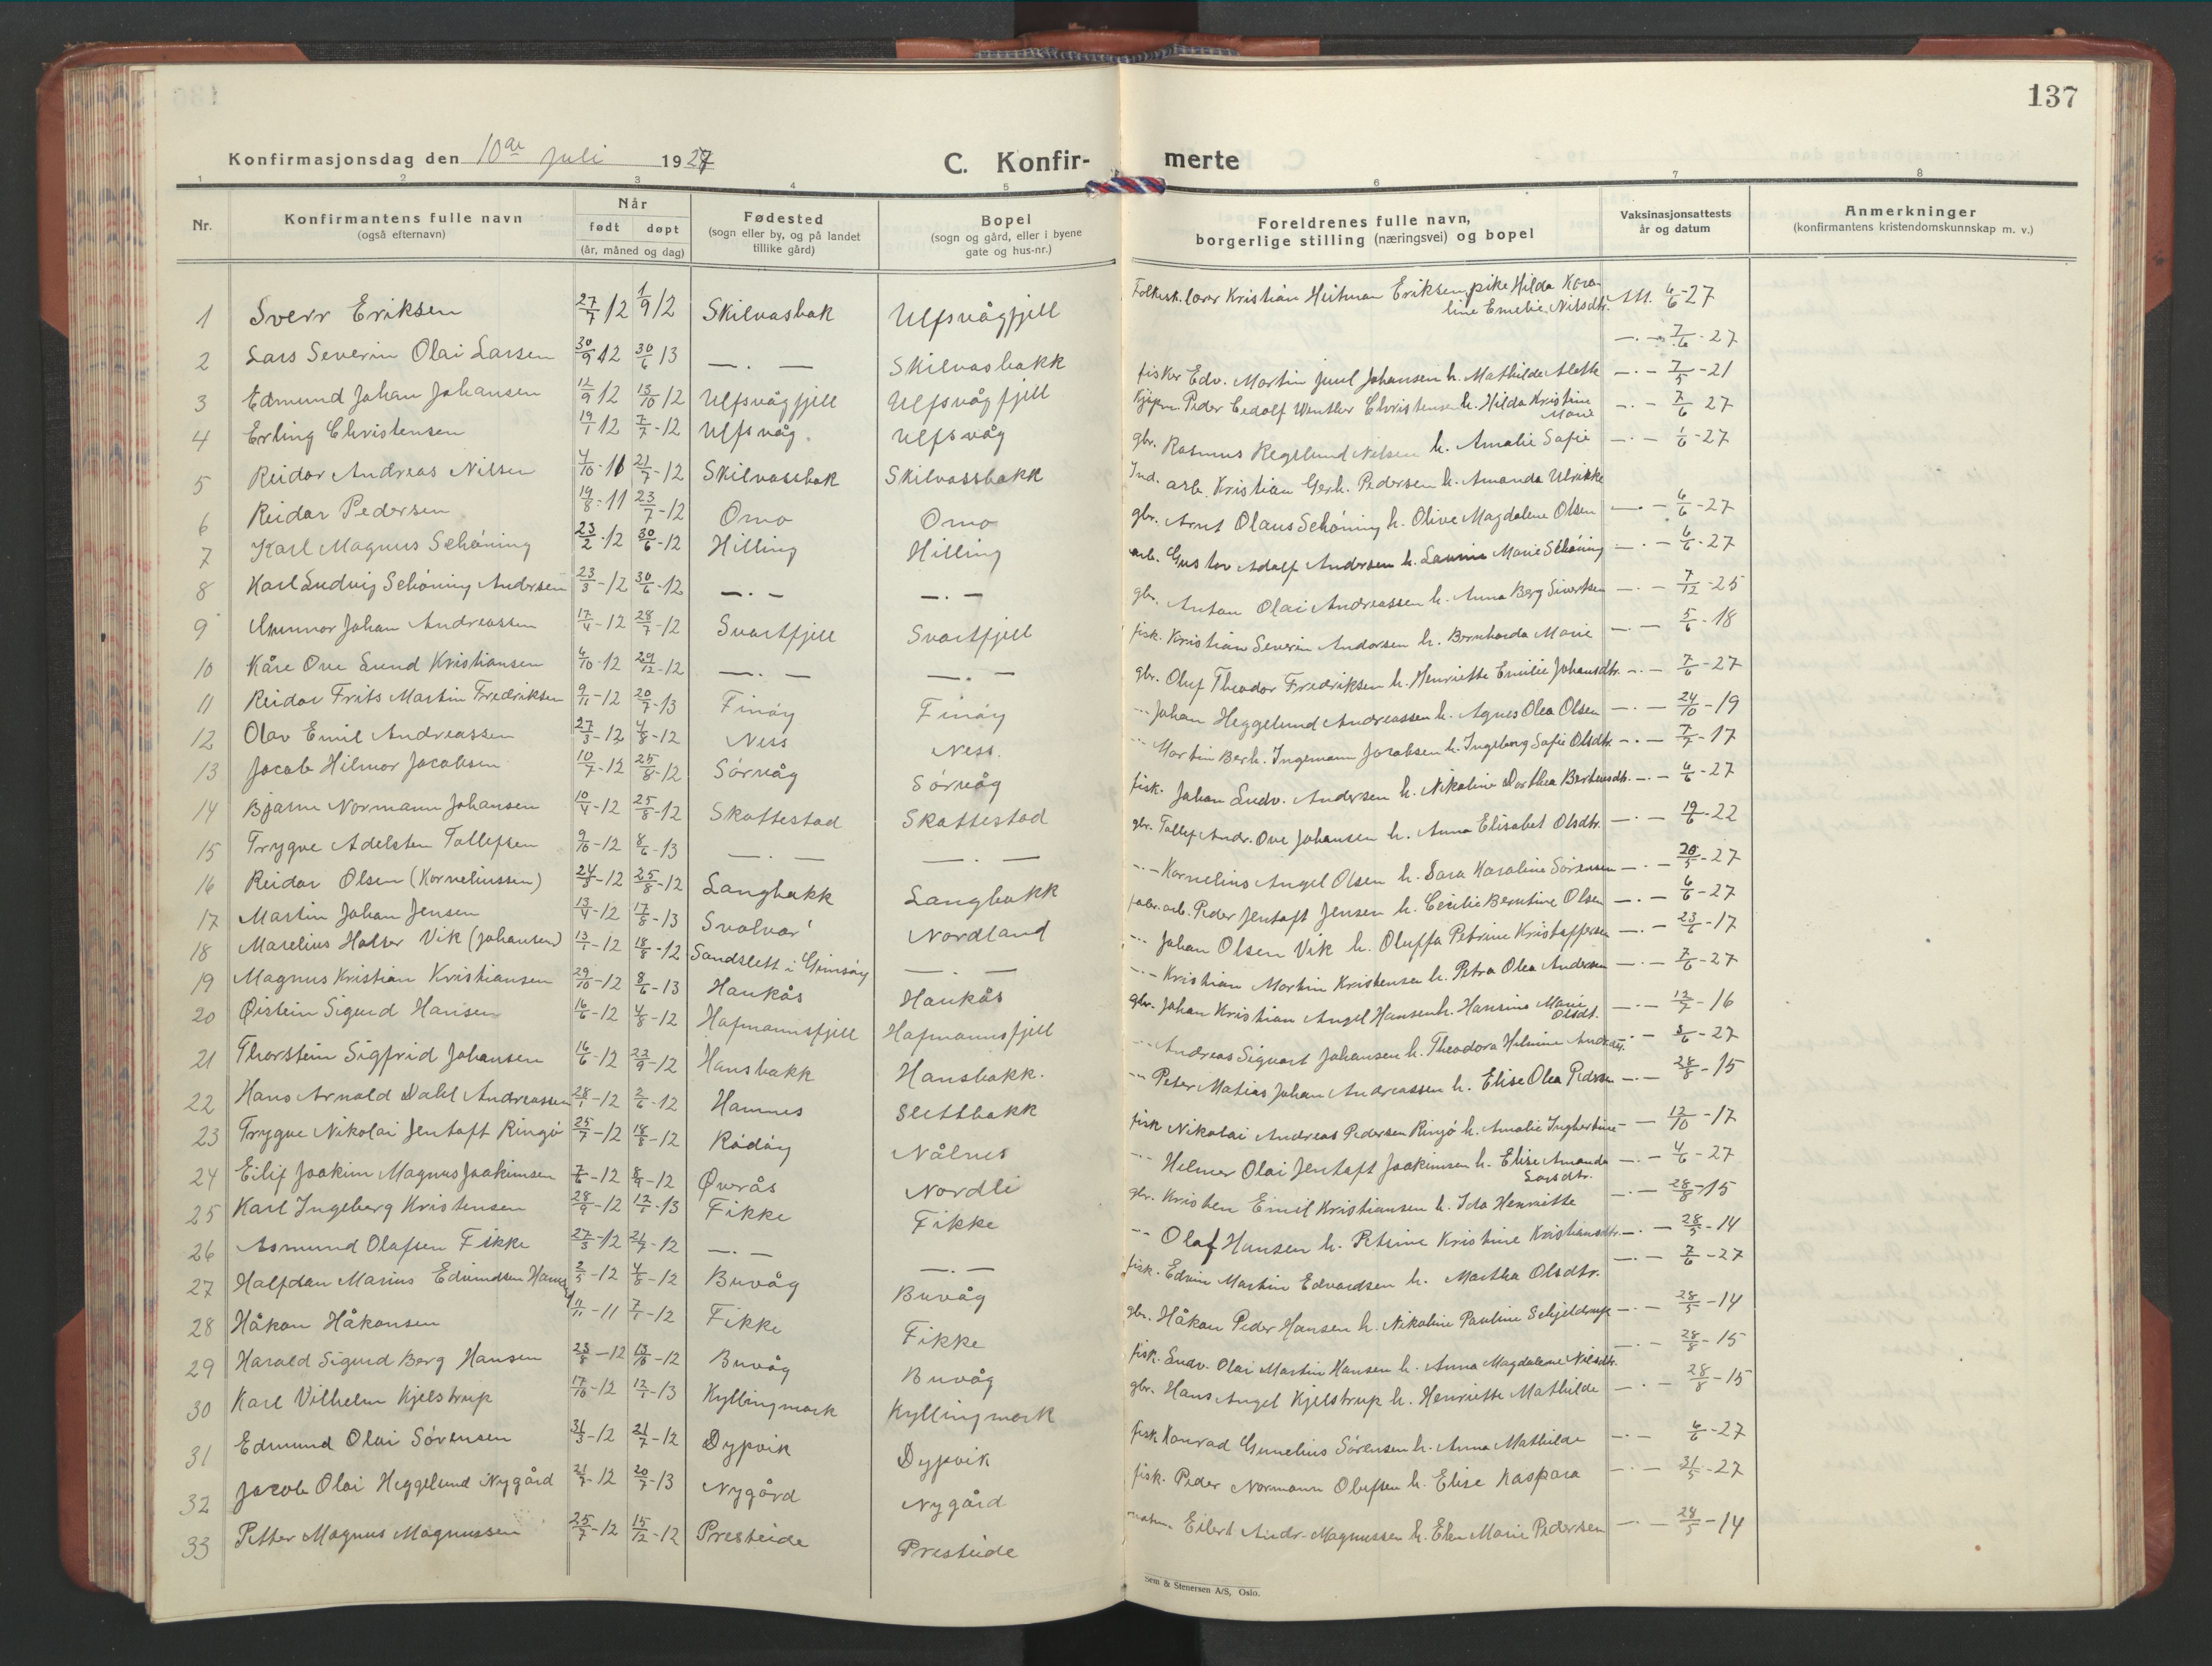 137
Konfirmasjonsdag den 10de juli 1927
C. Konfir- merte
1 2 3 4 5 6 7 8
Nr. Konfirmantens fulle navn (også efternavn) Når født døpt (år, måned og dag) Fødested (sogn eller by, og på landet tillike gård) Bopel (sogn og gård, eller i byene gate og hus-nr.) Foreldrenes fulle navn, borgerlige stilling (næringsvei) og bopel Vaksinasjonsattests år og datum Anmerkninger (konfirmantens kristendomskunnskap m. v.)
1 Sverr Eriksen 27/7 12 1/9 12 Skilvasbak Ulfsvågfjell Folkesk. lærer Kristian Heitman Eriksen, pike Hilda Karoline Emelie Nilsdtr. 6/6-27
2 Lars Severin Olai Larsen 30/9 12 30/6 13 —.— Skilvasbakk —.— 7/6-27
3 Edmund Johan Johansen 12/9 12 13/10 12 Ulfsvågfjell Ulfsvågfjell fisker Edv. Martin Juul Johansen h. Mathilde Alette —.— 7/5-21
4 Erling Christensen 19/1 12 7/7-12 Ulfsvåg Ulfsvåg Kjøpm. Peder Cedolf Winther Christensen h. Hilda Kristine Marie —.— 7/6 27
5 Reidar Andreas Nilsen 4/10-11 21/7-12 Skilvassbak Skilvassbakk gbr. Rasmus Hegelund Nilsen h. Amalie Sofie —.— 1/6-27
6 Reidar Pedersen 19/8-11 23/7-12 Omo Omo Ind. arb. Kristian Gerh. Pedersen h. Amanda Ulrikke
7 Karl Magnus Schöning 23/2-12 30/6-12 Hilling Hilling gbr. Arnt Olaus Schöning h. Olive Magdalene Olsen —.— 6/6-27
8 Karl Ludvig Schöning Andersen 23/3-12 30/6-12 —.— —.— arb. Gustav Adolf Andersen h. Laurine Marie Schöning —.— 6/6-27
9 Gunnar Johan Andreassen 17/4-12 28/7-12 Svartfjell Svartfjell gbr. Anton Olai Andreassen h. Anna Berg Sivertsen —.— 7/12-25
10 Kåre Ove Lund Kristiansen 6/10-12 29/12-12 —.— —.— fisk. Kristian Severin Andersen h. Bernharda Marie —.— 5/6-18
11 Reidar Frits Martin Fredriksen 9/11-12 20/7-13 Finöy Finöy gbr. Oluf Theodor Fredriksen h. Henriette Emilie Johansdtr. —.— 7/6-27
12 Olav Emil Andreassen 27/3-12 4/8-12 Ness Ness. -- Johan Heggelund Andreassen h. Agnes Olea Olsen —.— 24/10-19
13 Jacob Hilmar Jacobsen 10/7-12 25/8-12 Sörvåg Sörvåg -- Martin Berh. Ingemann Jacobsen h. Ingeborg Sofie Olsdtr. —.— 7/7-17
14 Bjarne Normann Johansen 10/4-12 25/8-12 Skottestad Skottestad fisk. Johan Ludv. Andersen h. Nikoline Dorthea Bertensdtr. —.— 6/6-27
15 Trygve Adelsten Tollefsen 9/10-12 8/6-13 —.— —.— gbr. Tollef Andr. Ove Johansen h. Anna Elisabet Olsdtr. —.— 19/6-22
16 Reidar Olsen (Korneliussen) 24/3-12 25/8-12 Langbakk Langbakk -- Kornelius Angel Olsen h. Sara Karoline Sörensen —.— 20/5-27
17 Martin Johan Jensen 13/4-12 17/8-13 Svolvær Nordland fabr.arb. Peder Jentoft Jensen h. Cecilie Berntine Olsen —.— 6/6-27
18 Marelius Halser Vik (Johansen) 13/1-12 18/8-12 Sandslett i Gimsöy —.— -- Johan Olsen Vik h. Oluffa Petrine Kristoffersen —.— 23/6-17
19 Magnus Kristian Kristiansen 29/10-12 8/6-13 Haukås Haukås -- Kristian Martin Kristensen h. Petra Olea Andersen —.— 7/6-27
20 Øistein Sigurd Hansen 16/6-12 4/8-12 Hafmannsfjell Hafmannsfjell gbr. Johan Kristian Angel Hansen h. Hansine Marie Olsdt. —.— 12/7-16
21 Thorstein Sigfrid Johansen 16/6-12 22/9-12 Hansbakk Hansbakk. -- Andreas Sigvart Johansen h. Theodora Hilmine Andr.dtr. — 3/6-27
22 Hans Arnold Dahl Andreassen 28/1-12 2/6-12 Hamnes Slettbakk -- Peter Matias Johan Andreassen h. Elise Olea Peders. —.— 28/8-15
23 Trygve Nikolai Jentoft Ringö 25/7-12 18/8-12 Rödöy Nålnes fisk Nikolai Andreas Pedersen Ringö h. Amalie Ingbertine — 12/10-17
24 Eilif Joakim Magnus Joakimsen 7/6-12 8/9-12 Øverås Nordli -- Helmer Olai Jentoft Joakimsen h. Elise Amanda Larsdtr. —.— 4/6-27
25 Karl Ingeberg Kristensen 28/9-12 12/1-13 Fikke Fikke gbr. Kristen Emil Kristiansen h. Ida Henriette —.— 28/8-15
26 Asmund Olafsen Fikke 27/3-12 21/7-12 —.— —.— -- Olaf Hansen h. Petrine Kristine Kristiansdtr. —.— 28/5-14
27 Halfdan Marius Edvindsen 2/5-12 4/8-12 Buvåg Buvåg fisk. Edvin Martin Edvardsen h. Martha Olsdtr. —.— 7/6-27
28 Håkon Håkonsen 11/11-11 7/1-12 Fikke Fikke gbr. Håkon Peder Hansen h. Nikoline Pauline Schjeldrup —.— 28/5-14
29 Harald Sigurd Berg Hansen 23/8-12 13/10-12 Buvåg Buvåg fisk. Ludv. Olai Martin Hansen h. Anna Magdalene Nilsdtr. —.— 28/8-15
30 Karl Vilhelm Kjelstrup 17/10-12 12/1-13 Kyllingmark Kyllingmark gbr. Hans Angel Kjelstrup h. Henriette Mathilde —.— 28/8-15
31 Edmund Olai Sörensen 31/3-12 21/7-12 Dypvik Dypvik fisk Konrad Gunelius Sörensen h. Anna Mathilde —.— 6/6-27
32 Jacob Olai Heggelund Nygård 21/7-12 20/7-13 Nygård Nygård fisk. Peder Normann Olufsen h. Elise Kaspara —.— 31/5-27
33 Petter Magnus Magnussen 25/7-12 15/12-12 Presteide Presteide Eilert Andr. Magnussen h. Elen Marie Pedersen —.— 28/5-14
Sem & Stenersen A/S, Oslo.